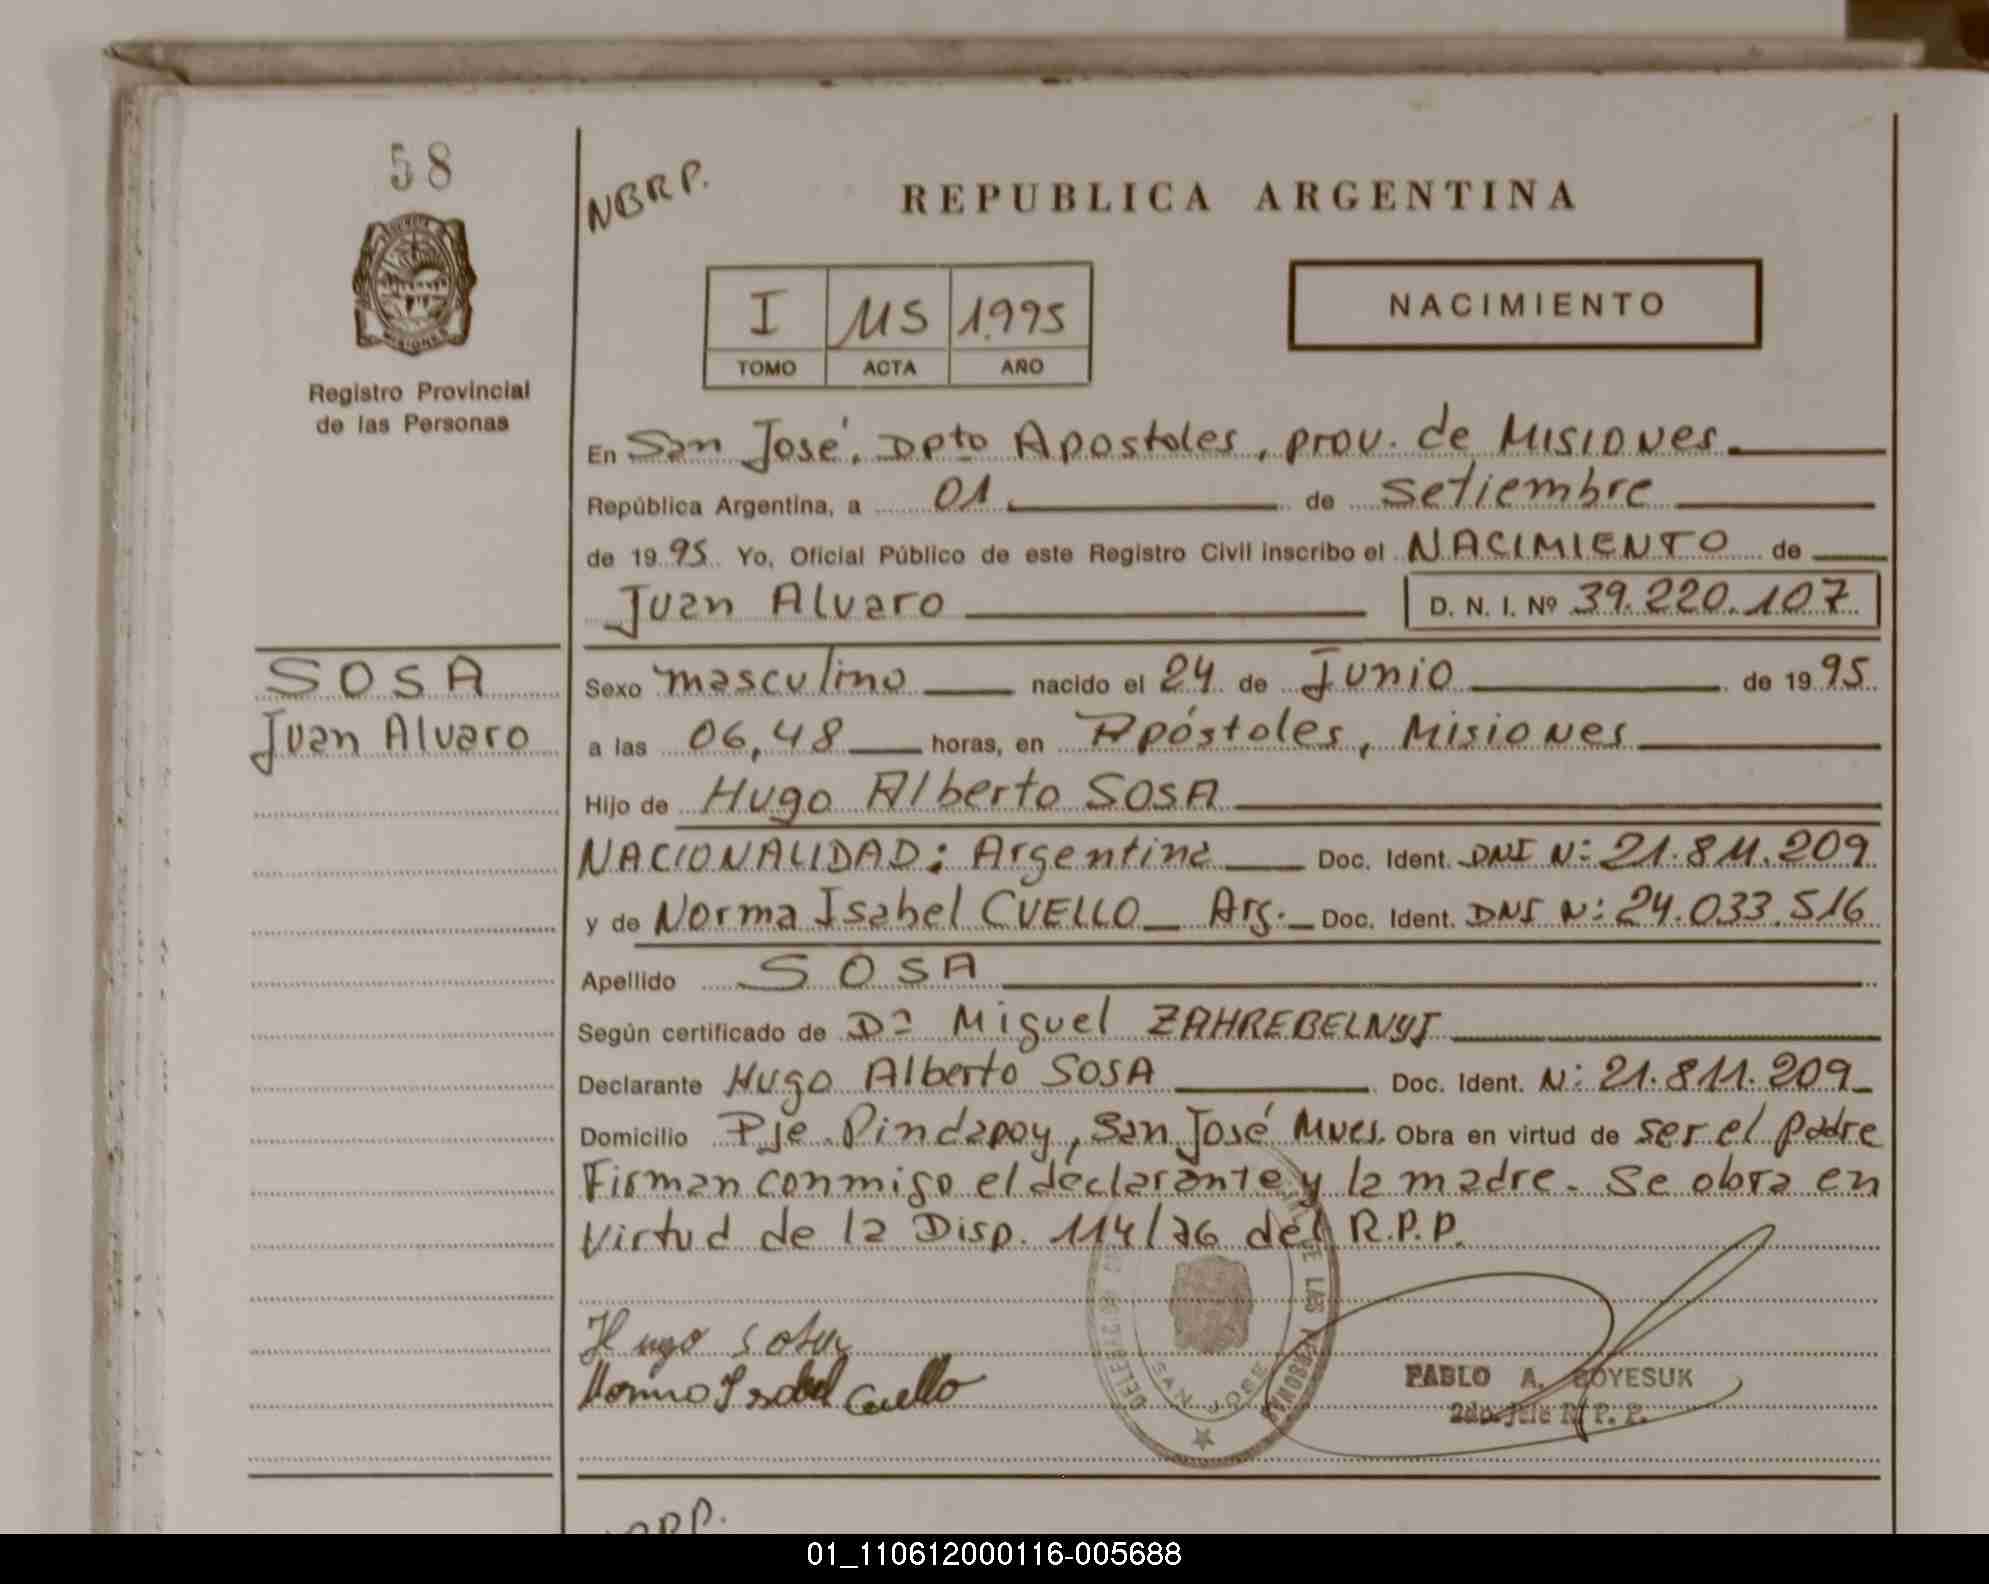 58
Registro Provincial
de las Personas
NBRP.
REPUBLICA ARGENTINA
I 115 1.995
TOMO ACTA AÑO
NACIMIENTO
En San José, Dpto Apostoles, prov. de Misiones
República Argentina, a 01 de setiembre
de 1995 Yo, Oficial Público de este Registro Civil inscribo el NACIMIENTO de
Juan Alvaro D. N. I. Nº 39.220.107
SOSA
Juan Alvaro
Sexo masculino nacido el 24 de Junio de 1995
a las 06,48 horas, en Apóstoles, Misiones
Hijo de Hugo Alberto SOSA
NACIONALIDAD: Argentina Doc. Ident. DNI Nº 21.811.209
y de Norma Isabel CUELLO Arg. Doc. Ident. DNI Nº 24.033.516
Apellido SOSA
Según certificado de Dº Miguel ZAHREBELNYJ
Declarante Hugo Alberto SOSA Doc. Ident. Nº 21.811.209
Domicilio Pje Pindapoy, San José Mnes. Obra en virtud de ser el padre
Firman conmigo el declarante y la madre. Se obra en
Virtud de la Disp. 114/76 del R.P.P.
Hugo Sosa
Norma Isabel Cuello
DE LAS PERSONAS
SAN JOSE
PABLO A. BOYESUK
2do. jefe R. P. P.
01_110612000116-005688